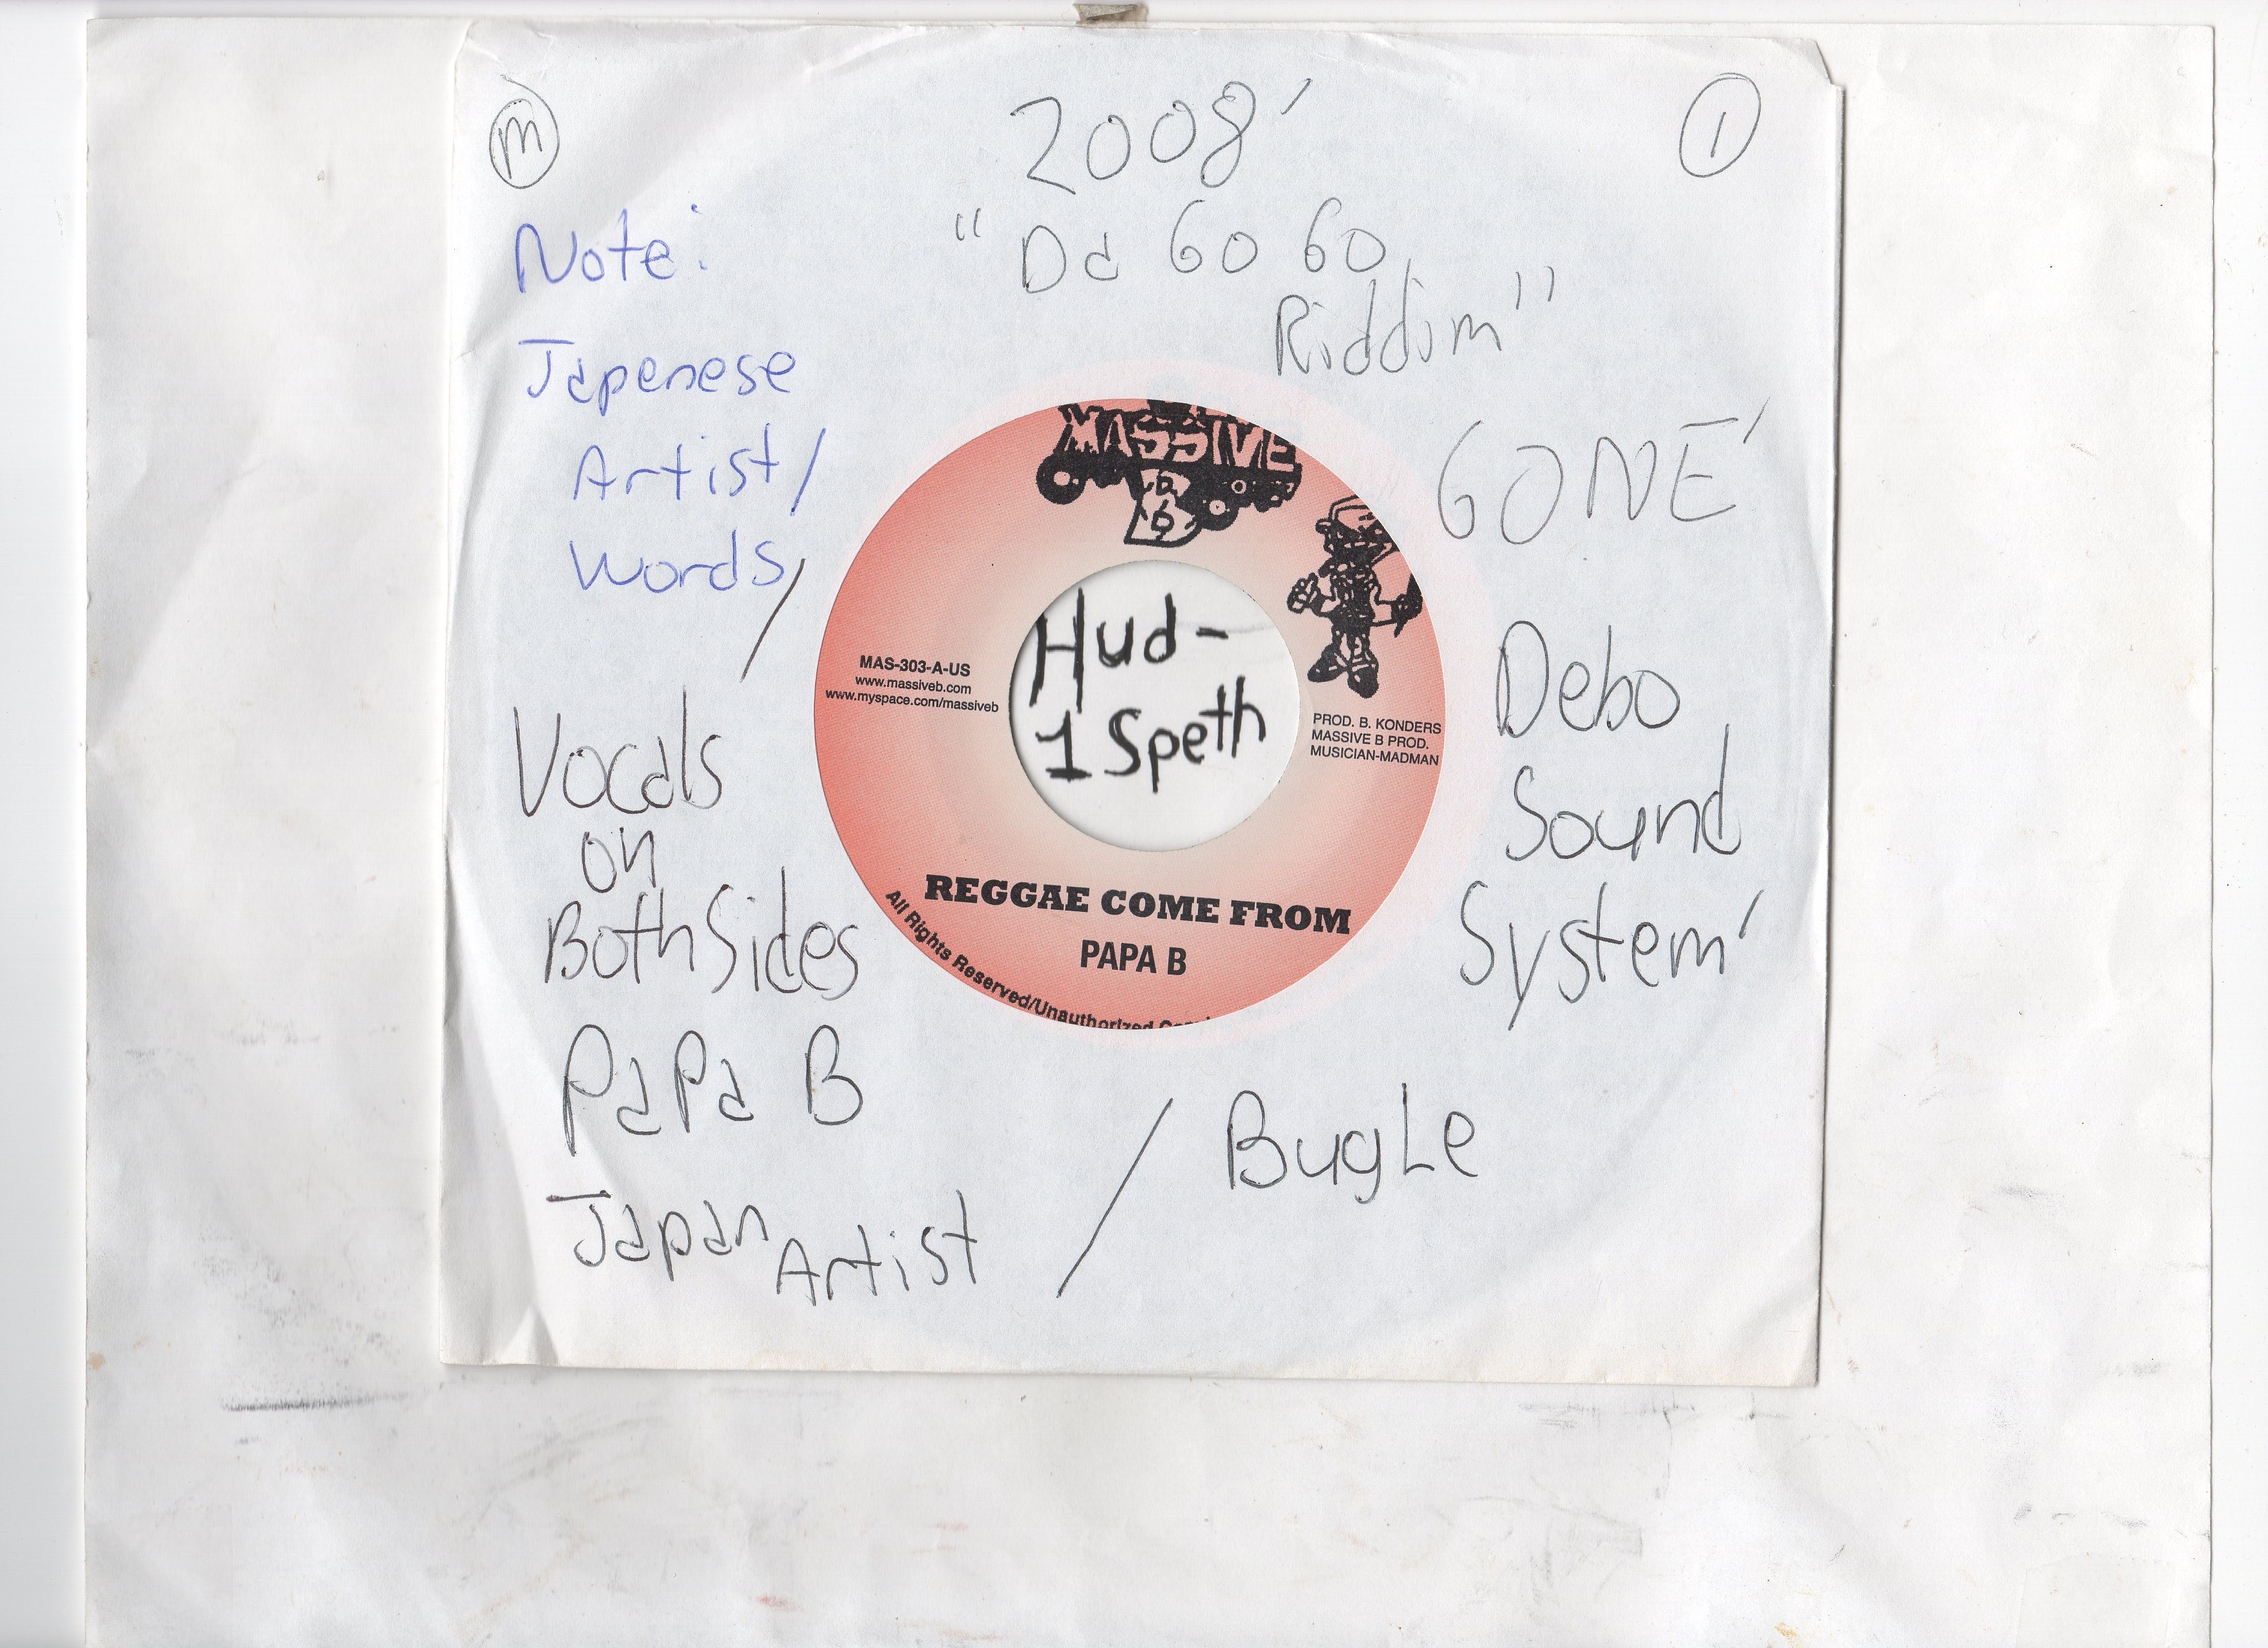 m
2008'
1
"Da Go Go
Riddim"
Note:
Japenese
Artist/
Words/
GONE'
Debo
Sound
System'
MASSIVE
B
MAS-303-A-US
www.massiveb.com
www.myspace.com/massiveb
Hud-
1 Speth
PROD. B. KONDERS
MASSIVE B PROD.
MUSICIAN-MADMAN
REGGAE COME FROM
PAPA B
All Rights Reserved/Unauthorized
Vocals
on
Both Sides
PaPa B
Japan Artist
/ BugLe